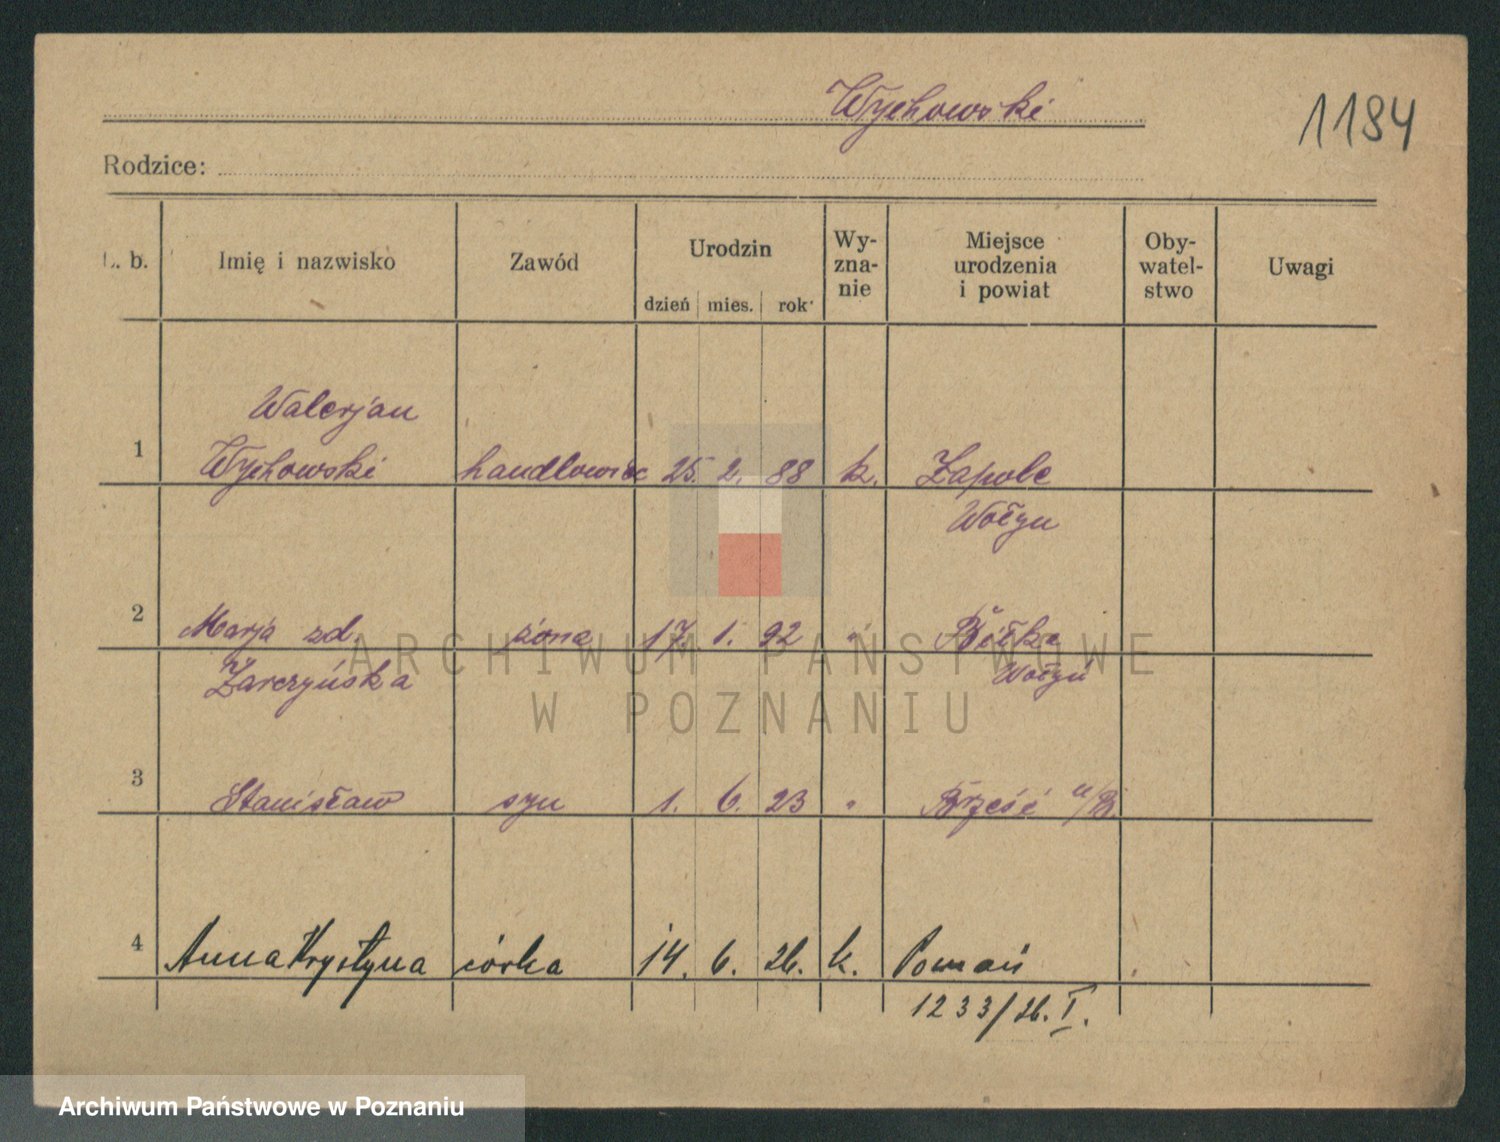 Wychowski
1184
Rodzice:
L. b. Imię i nazwisko Zawód Urodzin dzień mies. rok Wy-zna-nie Miejsce urodzenia i powiat Oby-watel-stwo Uwagi
Walerjan
1 Wychowski handlowiec 25. 2. 88 k. Zapole
Wołyn
2 Marja zd. żona 17. 1. 92 " Biłka
Zarczyńska Wołyń
3 Stanisław syn 1. 6. 23 " Brześć n/B.
4 Anna Krystyna córka 14. 6. 26. k. Poznań
1233/26. I.
ARCHIWUM PAŃSTWOWE
W POZNANIU
Archiwum Państwowe w Poznaniu